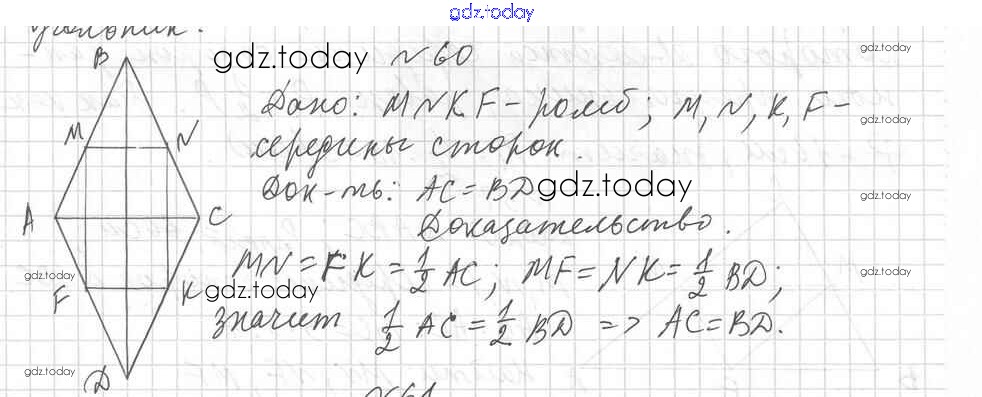 gdz.today
gdz.today
gdz.today №60
Дано: MNKF - ромб; M, N, K, F -
gdz.today
середины сторон.
Док-ть: AC = BD gdz.today
gdz.today
Доказательство.
MN = FK = 1/2 AC; MF = NK = 1/2 BD;
gdz.today
gdz.today
gdz.today
значит 1/2 AC = 1/2 BD => AC = BD.
gdz.today
gdz.today
B
M N
A C
F K
D